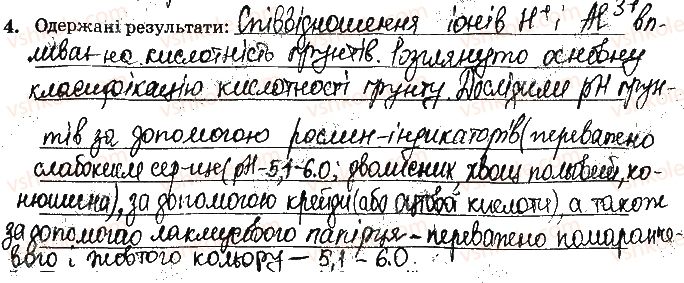 4. Одержані результати: Співвідношення іонів H⁺ і Al³⁺ вп-
ливає на кислотність ґрунтів. Розглянуто основну
класифікацію кислотності ґрунту. Дослідили pH ґрун-
тів за допомогою рослин-індикаторів (переважно
слабокисле сер-ще (pH-5,1-6.0; хвощ польовий, ко-
нюшина), за допомогою крейди (або оцтової кислоти), а також
за допомогою лакмусового папірця - переважно помаранче-
вого і жовтого кольору - 5,1 - 6.0.